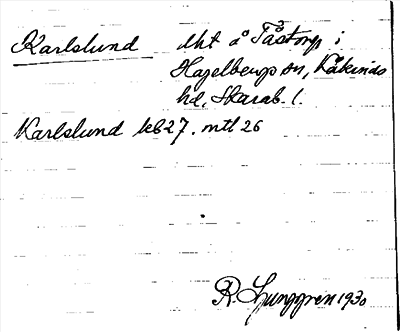 Karlslund lht å Tåstorp i
Hagelbergs sn, Kåkinds
hd, Skarab. l.
Karlslund kb27. mtl 26
R. Ljunggren 1930